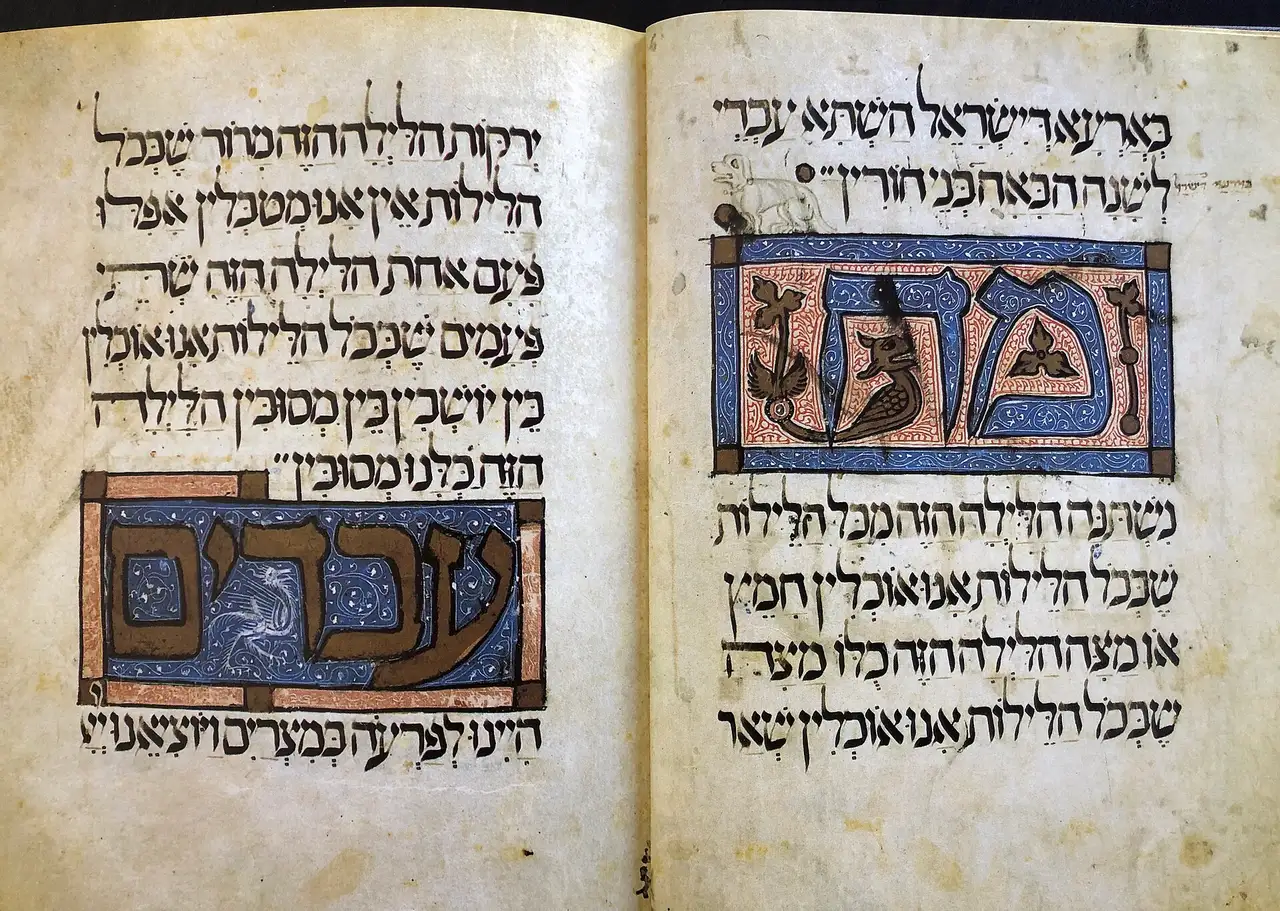 בְּאַרְעָא דְיִשְׂרָאֵל הָשַׁתָּא עַבְדֵי
לְשָׁנָה הַבָּאָה בְּנֵי חוֹרִין״
מה
נִשְׁתַּנָּה הַלַּיְלָה הַזֶּה מִכָּל הַלֵּילוֹת
שֶׁבְּכָל הַלֵּילוֹת אָנוּ אוֹכְלִין חָמֵץ
אוֹ מַצָּה הַלַּיְלָה הַזֶּה כֻּלּוֹ מַצָּה
שֶׁבְּכָל הַלֵּילוֹת אָנוּ אוֹכְלִין שְׁאָר
יְרָקוֹת הַלַּיְלָה הַזֶּה מָרוֹר שֶׁבְּכָל
הַלֵּילוֹת אֵין אָנוּ מְטַבְּלִין אֲפִלּוּ
פַּעַם אַחַת הַלַּיְלָה הַזֶּה שְׁתֵּי
פְעָמִים שֶׁבְּכָל הַלֵּילוֹת אָנוּ אוֹכְלִין
בֵּין יוֹשְׁבִין בֵּין מְסוּבִּין הַלַּיְלָה
הַזֶּה כֻּלָּנוּ מְסוּבִּין״
עבדים
הָיִינוּ לְפַרְעֹה בְּמִצְרָיִם וַיּוֹצִיאֵנוּ יְיָ